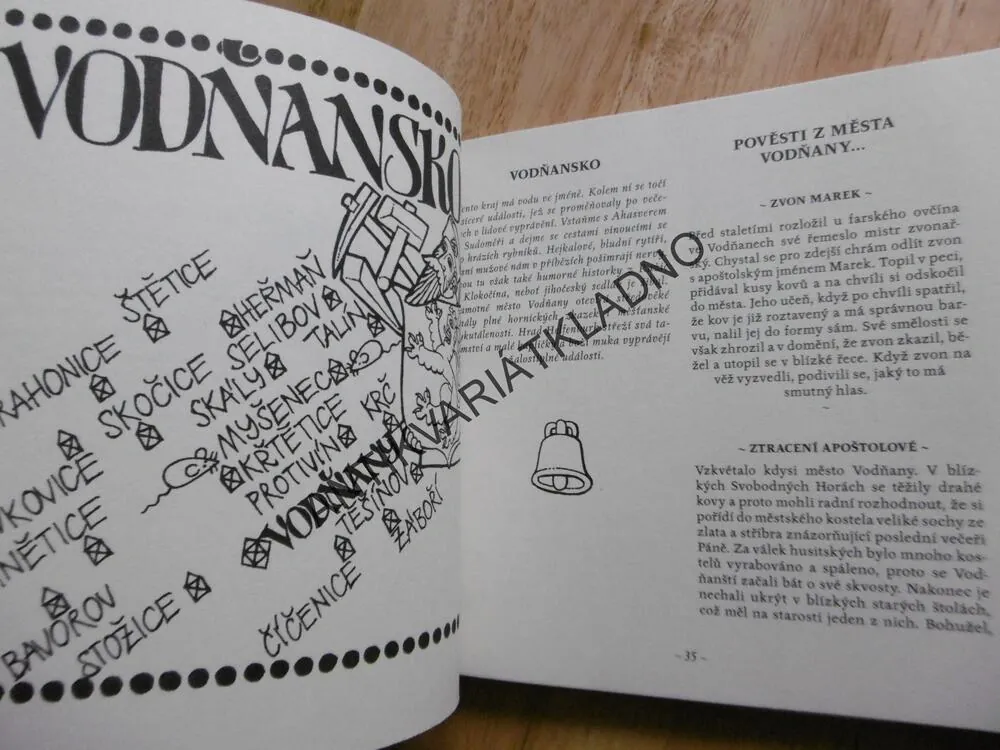 VODŇANSKO
ŠTĚTICE
HEŘMAŇ
RAHONICE
SKOČICE
SELIBOV
SKÁLY
TALÍN
MYŠENEC
KŘTĚTICE
KRČ
PROTIVÍN
VODŇANY
TĚŠÍNOV
ZÁBOŘÍ
VKOVICE
NĚTICE
BAVOROV
STOŽICE
ČÍČENICE
VODŇANSKO
ento kraj má vodu ve jméně. Kolem ní se točí
události, jež se proměňovaly po veče-
ech v lidové vyprávění. Vstaňme s Ahasverem
Sudoměři a dejme se cestami vinoucími se
hrázích rybníků. Hejkalové, bludní rytíři,
mužové nám v příbězích pošimrají
tu však také humorné historky
Klokočína, neboť jihočeský
město Vodňany
plné hornických
Hrad střeží svá ta-
a malé muka vyprávějí
události.
POVĚSTI Z MĚSTA
VODŇANY...
~ ZVON MAREK ~
Před staletími rozložil u farského ovčína
ve Vodňanech své řemeslo mistr zvonař-
ský. Chystal se pro zdejší chrám odlít zvon
s apoštolským jménem Marek. Topil v peci,
přidával kusy kovů a na chvíli si odskočil
do města. Jeho učeň, když po chvíli spatřil,
že kov je již roztavený a má správnou bar-
vu, nalil jej do formy sám. Své smělosti se
však zhrozil a v domění, že zvon zkazil, bě-
žel a utopil se v blízké řece. Když zvon na
věž vyzvedli, podivili se, jaký to má
smutný hlas.
~
~ ZTRACENÍ APOŠTOLOVÉ ~
Vzkvétalo kdysi město Vodňany. V blíz-
kých Svobodných Horách se těžily drahé
kovy a proto mohli radní rozhodnout, že si
pořídí do městského kostela veliké sochy ze
zlata a stříbra znázorňující poslední večeři
Páně. Za válek husitských bylo mnoho kos-
telů vyrabováno a spáleno, proto se Vod-
ňanští začali bát o své skvosty. Nakonec je
nechali ukrýt v blízkých starých štolách,
což měl na starosti jeden z nich. Bohužel,
~ 35 ~
ANTIKVARIÁTKLADNO